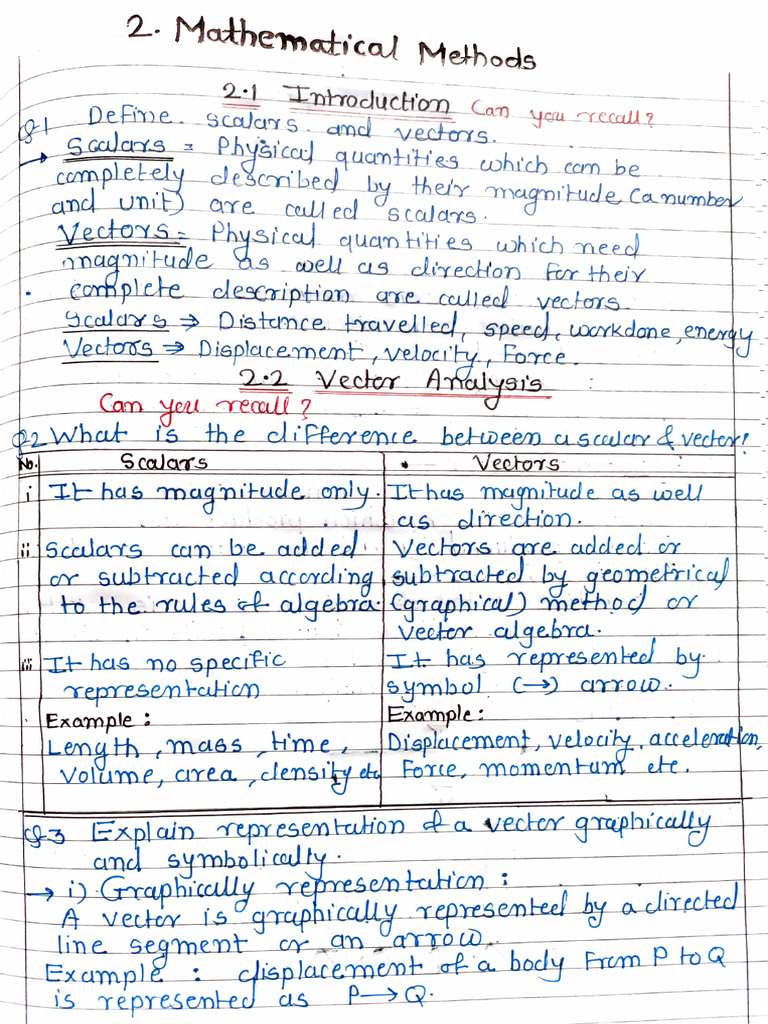 2. Mathematical Methods
2.1 Introduction Can you recall?
Q1 Define scalars and vectors.
→ Scalars = Physical quantities which can be
completely described by their magnitude (a number
and unit) are called scalars.
Vectors = Physical quantities which need
magnitude as well as direction for their
complete description are called vectors
Scalars → Distance travelled, speed, workdone, energy
Vectors → Displacement, velocity, Force.
2.2 Vector Analysis
Can you recall?
Q2 What is the difference between a scalar & vector?
No. Scalars Vectors
i It has magnitude only. It has magnitude as well
as direction.
ii Scalars can be added Vectors are added or
or subtracted according subtracted by geometrical
to the rules of algebra. (graphical) method or
vector algebra.
iii It has no specific It has represented by
representation symbol (→) arrow.
Example : Example :
Length, mass, time, Displacement, velocity, acceleration,
volume, area, density etc Force, momentum etc.
Q3 Explain representation of a vector graphically
and symbolically.
→ i) Graphically representation :
A vector is graphically represented by a directed
line segment or an arrow.
Example : displacement of a body From P to Q
is represented as P→Q.